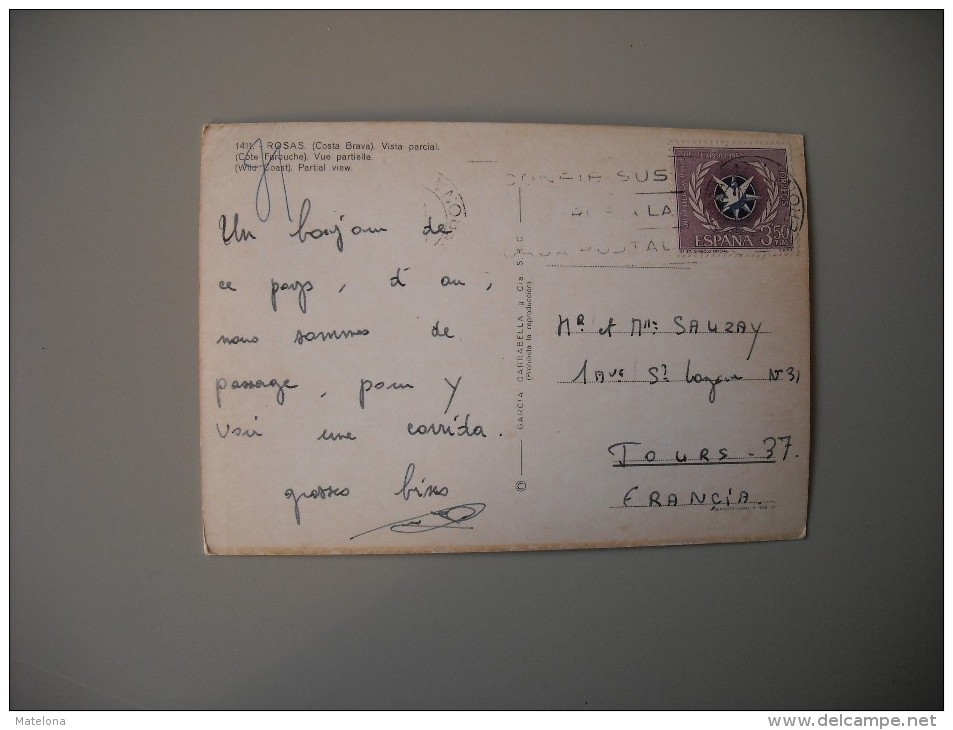 1411. ROSAS. (Costa Brava). Vista parcial.
(Côte Farouche). Vue partielle.
(Wild Coast). Partial view.
Un bonjour de
ce pays, d'où,
nous sommes de
passage, pour y
voir une corrida.
grosses bises
© GARCIA GARRABELLA y Cia S.R.C.
(Prohibida la reproducción)
SUS
A LA
POSTAL
CORREOS
ESPAÑA 3'50 PTAS
Mr et Mme SAUZAY
St N 31
TOURS - 37.
FRANCIA.
Matelona
http://www.delcampe.net